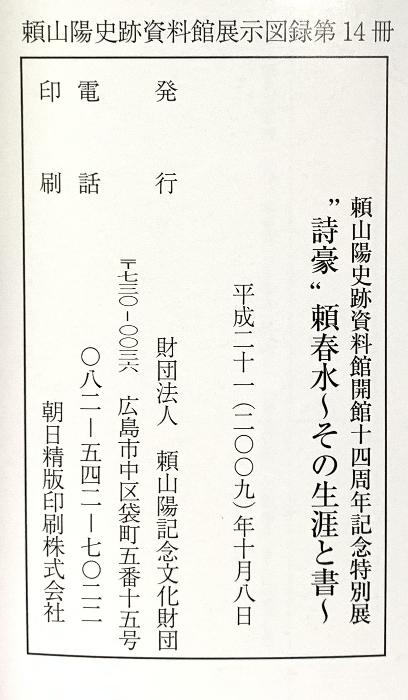 頼山陽史跡資料館展示図録第14冊
頼山陽史跡資料館開館十四周年記念特別展
”詩豪“ 頼春水～その生涯と書～
平成二十一(二〇〇九)年十月八日
発行 財団法人 頼山陽記念文化財団
〒七三〇-〇〇三六 広島市中区袋町五番十五号
電話 〇八二―五四二―七〇二二
印刷 朝日精版印刷株式会社